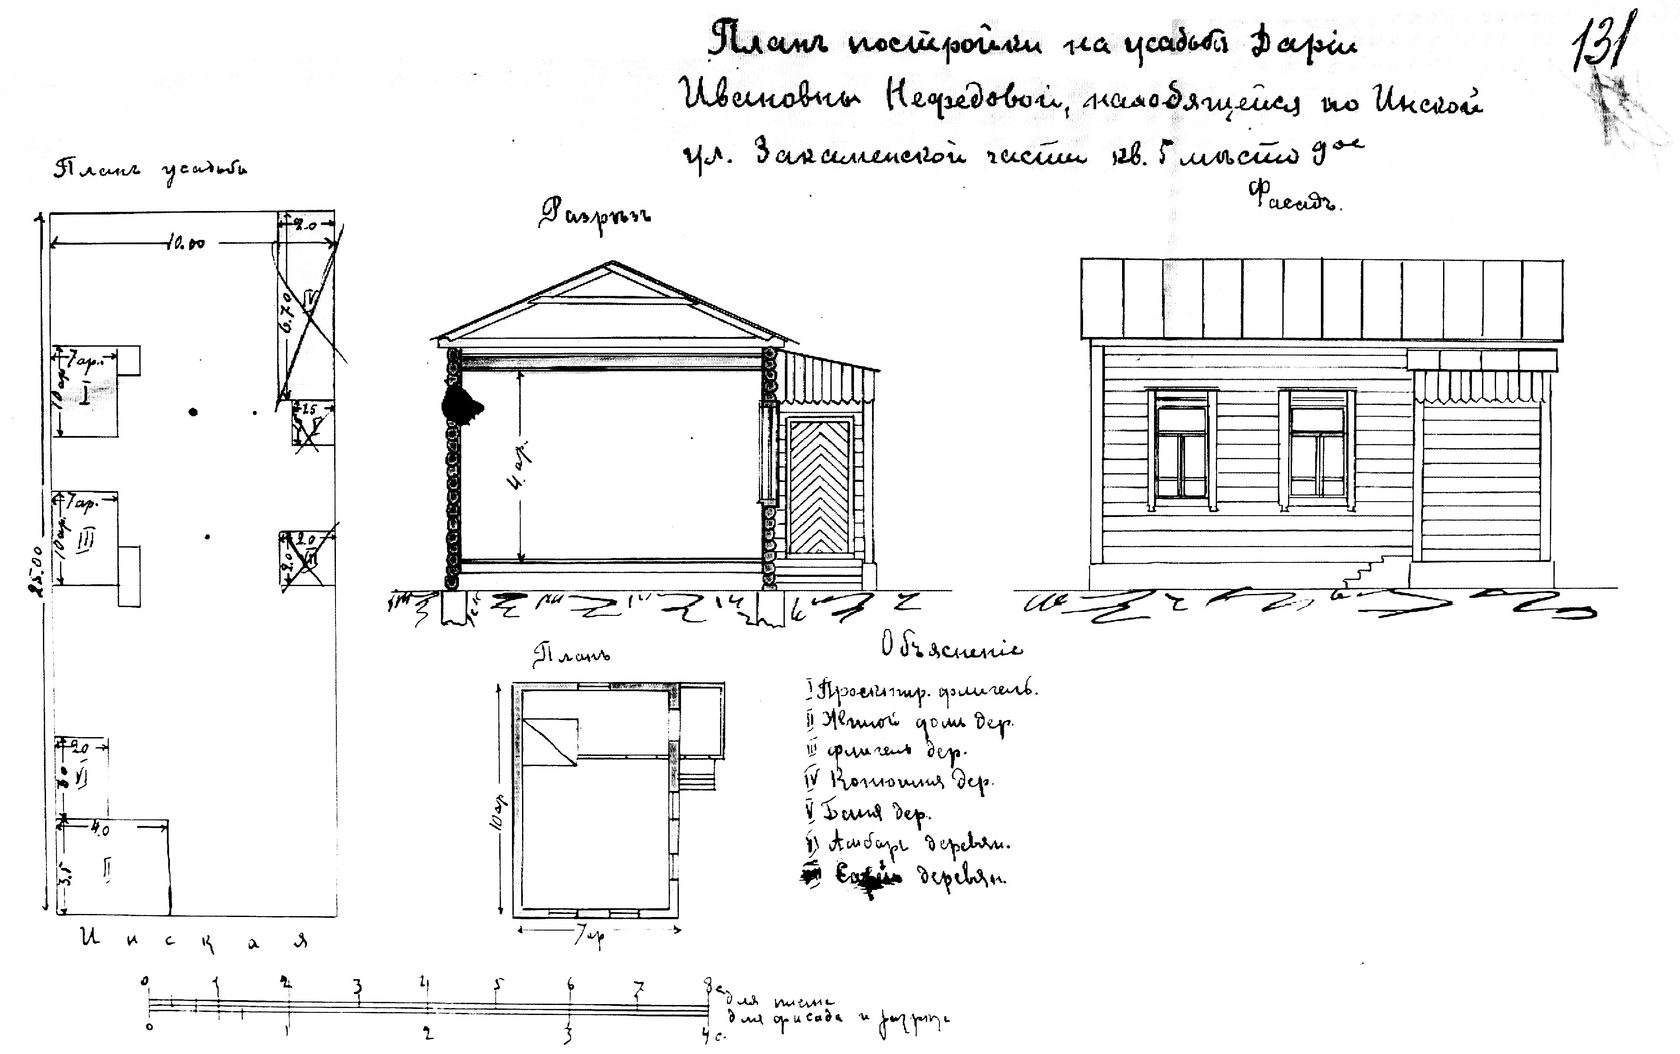 Планъ постройки на усадьбѣ Даріи
131
Ивановны Нефедовой, находящейся по Инской
ул. Закаменской части кв. 5 мѣсто 9ое
Планъ усадьбы
Разрѣзъ
Фасадъ.
2.0
10.00
6.70
IV
7ар.
10ар.
I
V
4.ар.
7ар.
10ар.
III
2.0
2.0
25.00
20
VI
4.0
3.5
II
Инская
Планъ
10ар
7ар
Объясненіе
I Проектир. флигель.
II Жилой домъ дер.
III флигель дер.
IV Конюшня дер.
V Баня дер.
VI Амбаръ деревян.
деревян.
0 1 2 3 4 5 6 7 8с.
для плана
для фасада и разрѣза
0 1 2 3 4с.